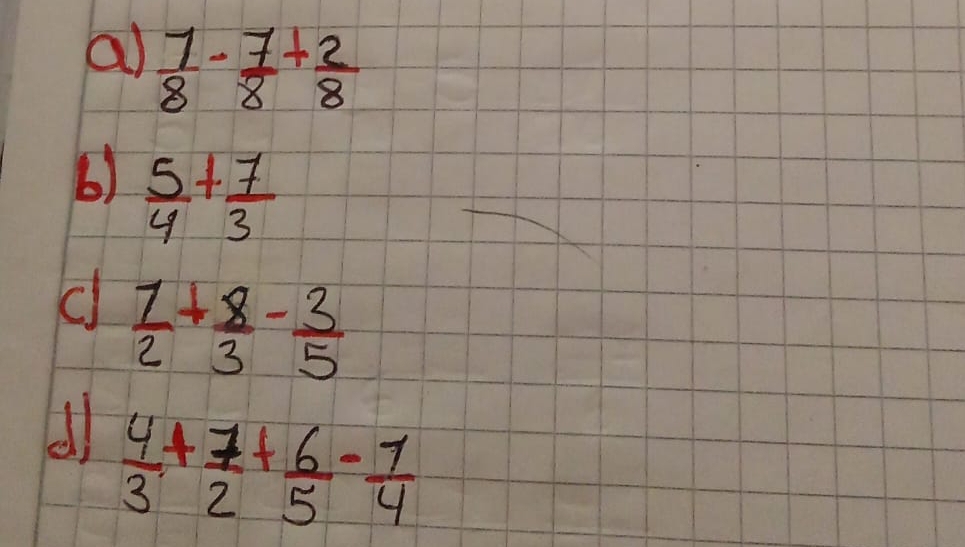 a) 7/8 - 7/8 + 2/8
b) 5/4 + 7/3
c) 7/2 + 8/3 - 3/5
d) 4/3 + 7/2 + 6/5 - 7/4